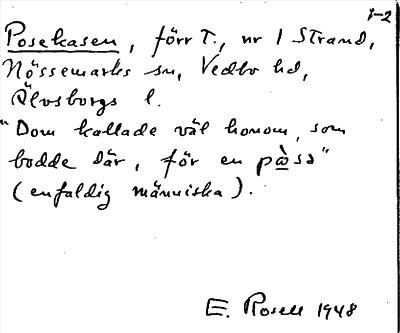 1-2
Posekasen, förr T., nr 1 Strand,
Nössemarks sn, Vedbo hd,
Älvsborgs l.
"Dom kallade väl honom, som
bodde där, för en pàsa"
(enfaldig människa).
E. Rosell 1948